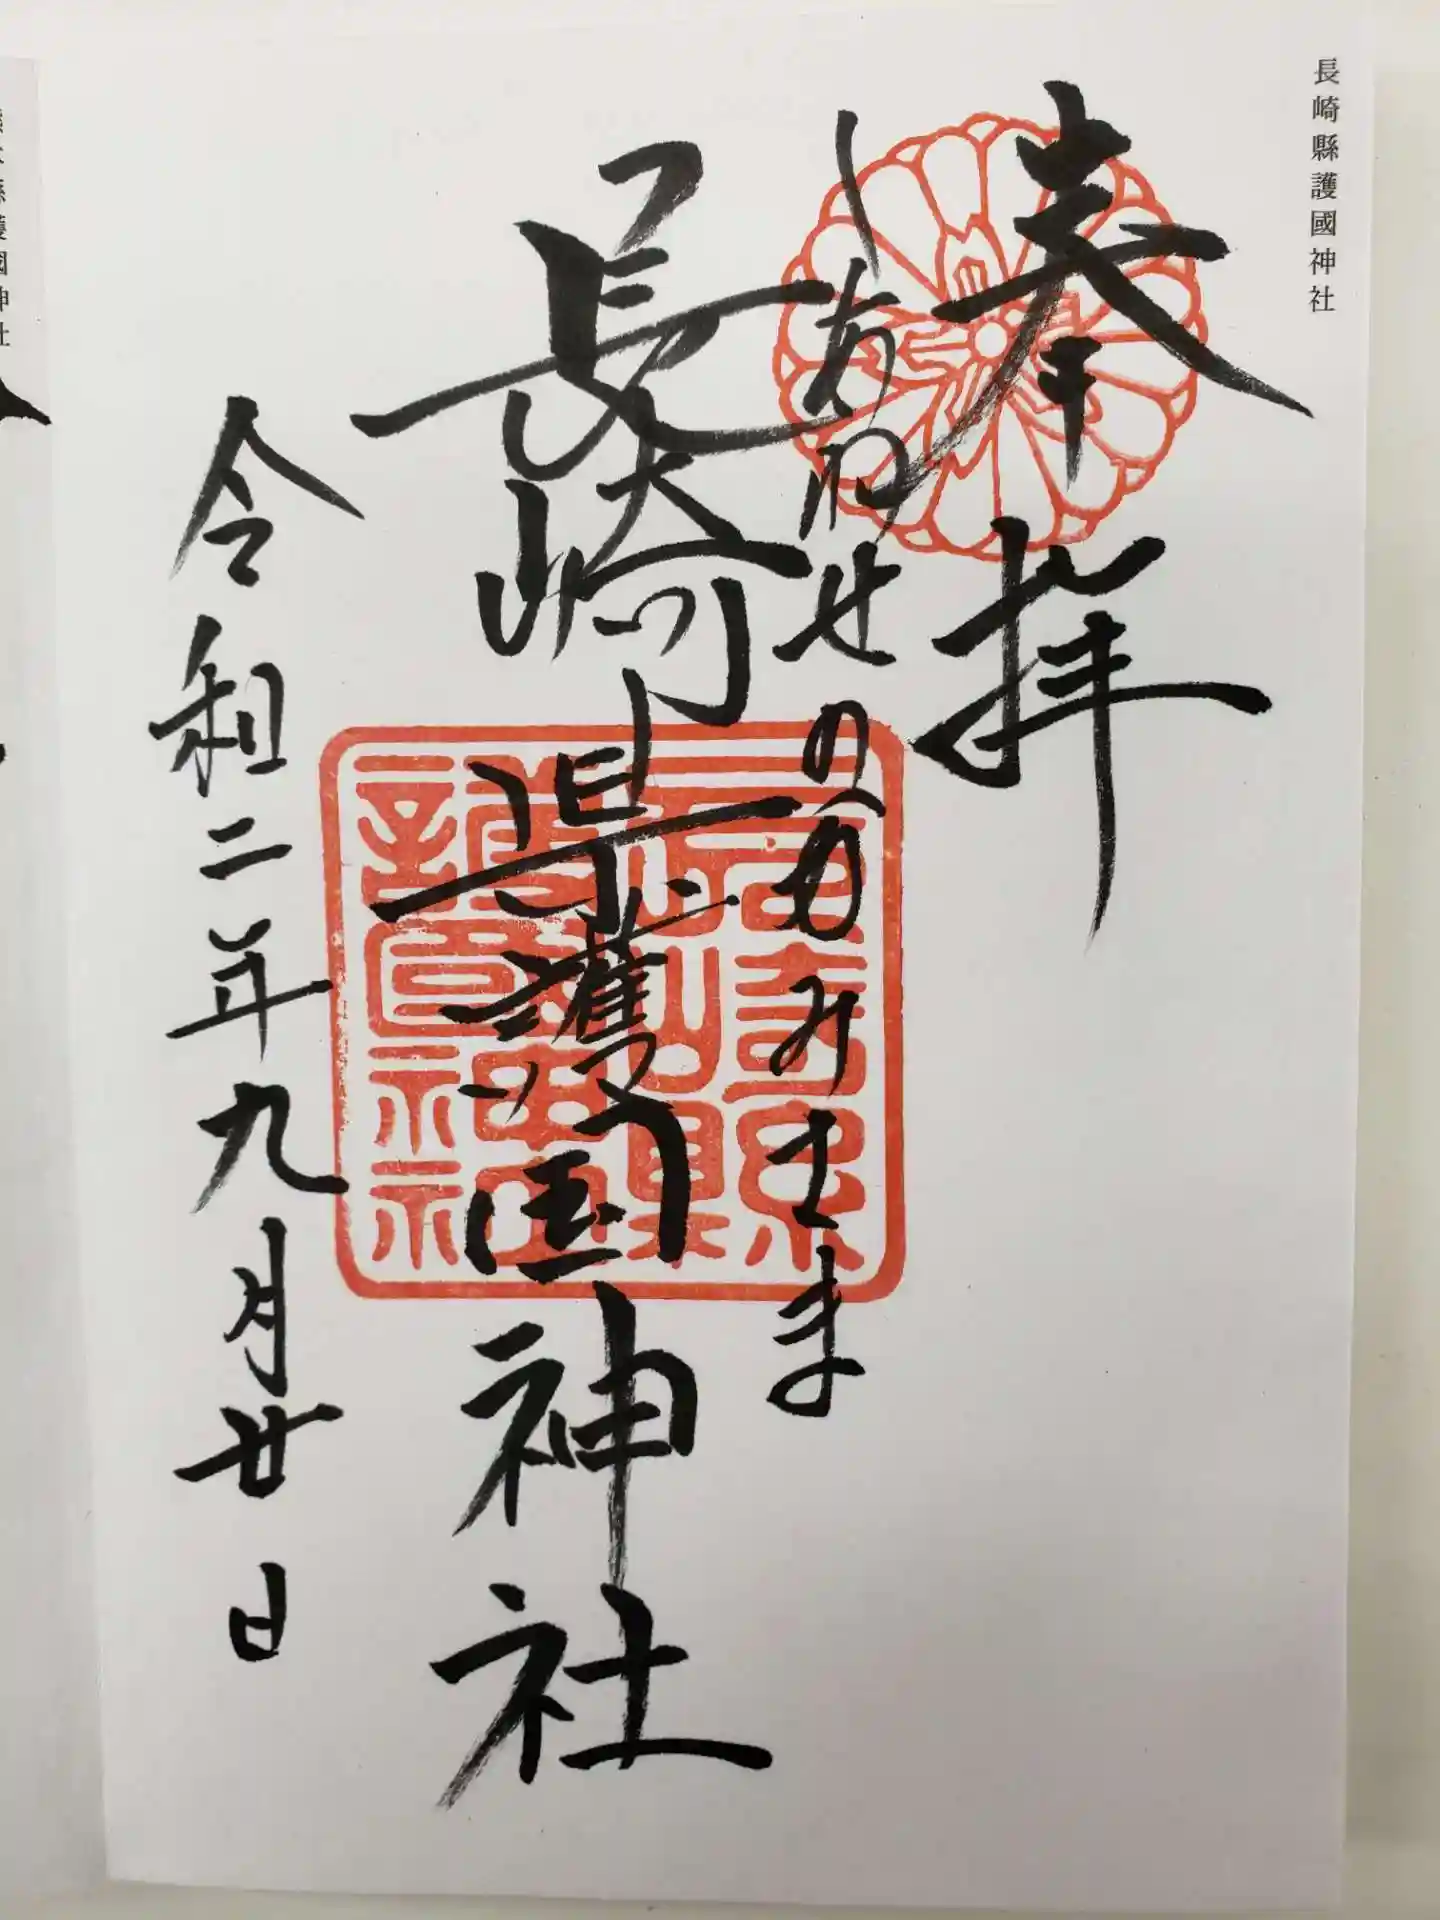 長崎縣護國神社
奉拝
しあわせのかみさま
長崎県護国神社
令和二年九月廿日
長崎縣護國神社